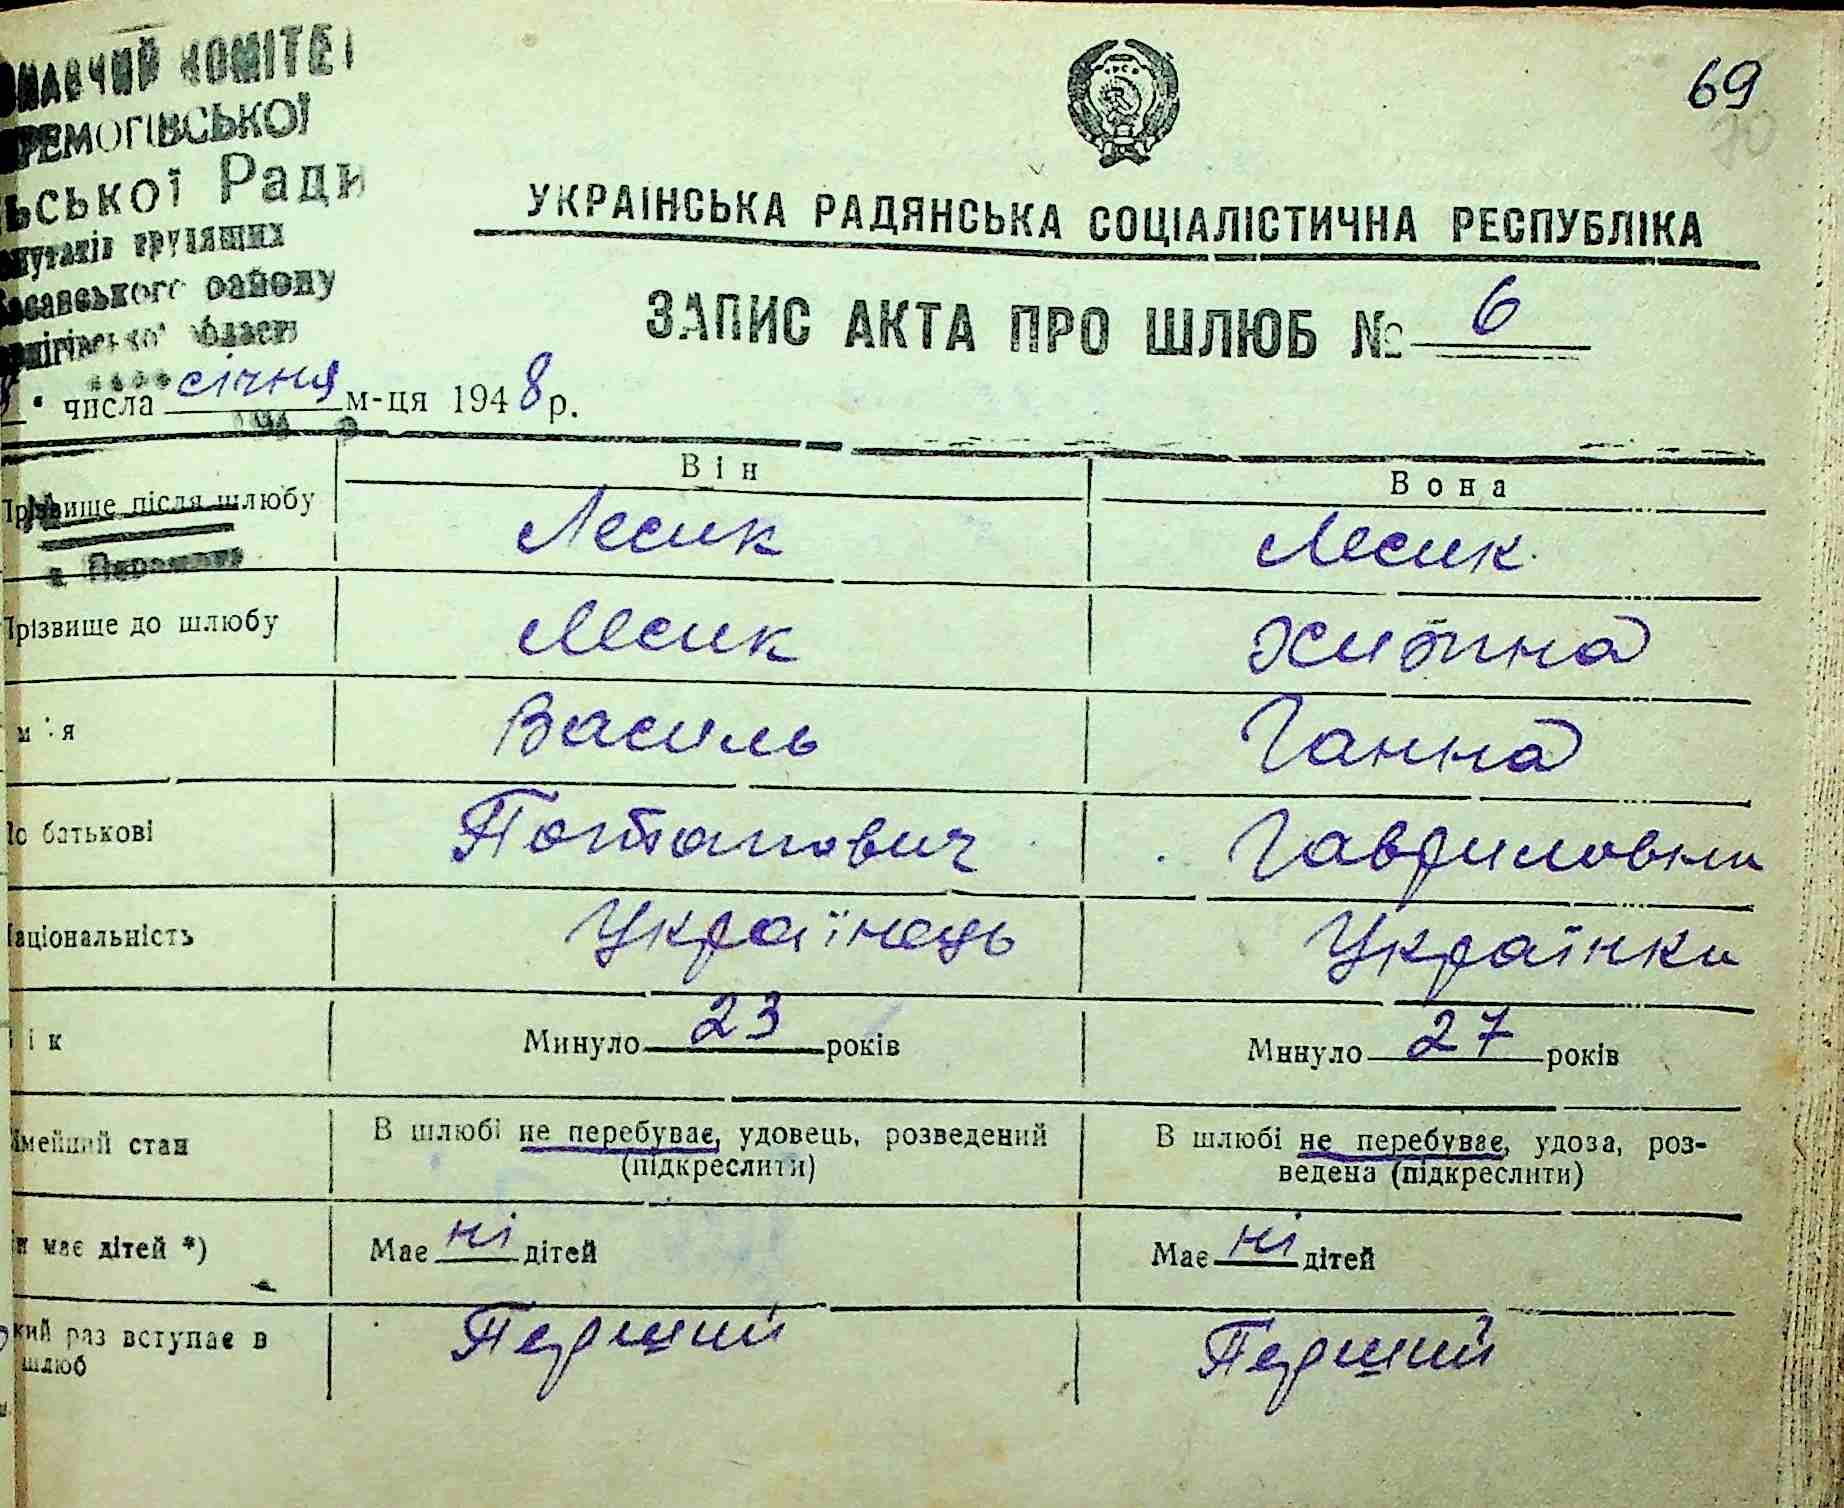 КОМІТЕТ
РЕМОГІВСЬКОЇ
ЬСЬКОЇ Ради
путатів трудящих
району
області
69
70
УКРАЇНСЬКА РАДЯНСЬКА СОЦІАЛІСТИЧНА РЕСПУБЛІКА
ЗАПИС АКТА ПРО ШЛЮБ № 6
числа січня м-ця 1948 р.
Він Вона
Прізвище після шлюбу Лесик Лесик
Прізвище до шлюбу Лесик Хитина
м'я Василь Ганна
По батькові Потапович Гавриловна
Національність Українець Українка
ік Минуло 23 років Минуло 27 років
імейний стан В шлюбі не перебуває, удовець, розведений (підкреслити) В шлюбі не перебуває, удова, роз-
ведена (підкреслити)
и має дітей *) Має ні дітей Має ні дітей
кий раз вступає в шлюб Перший Перший